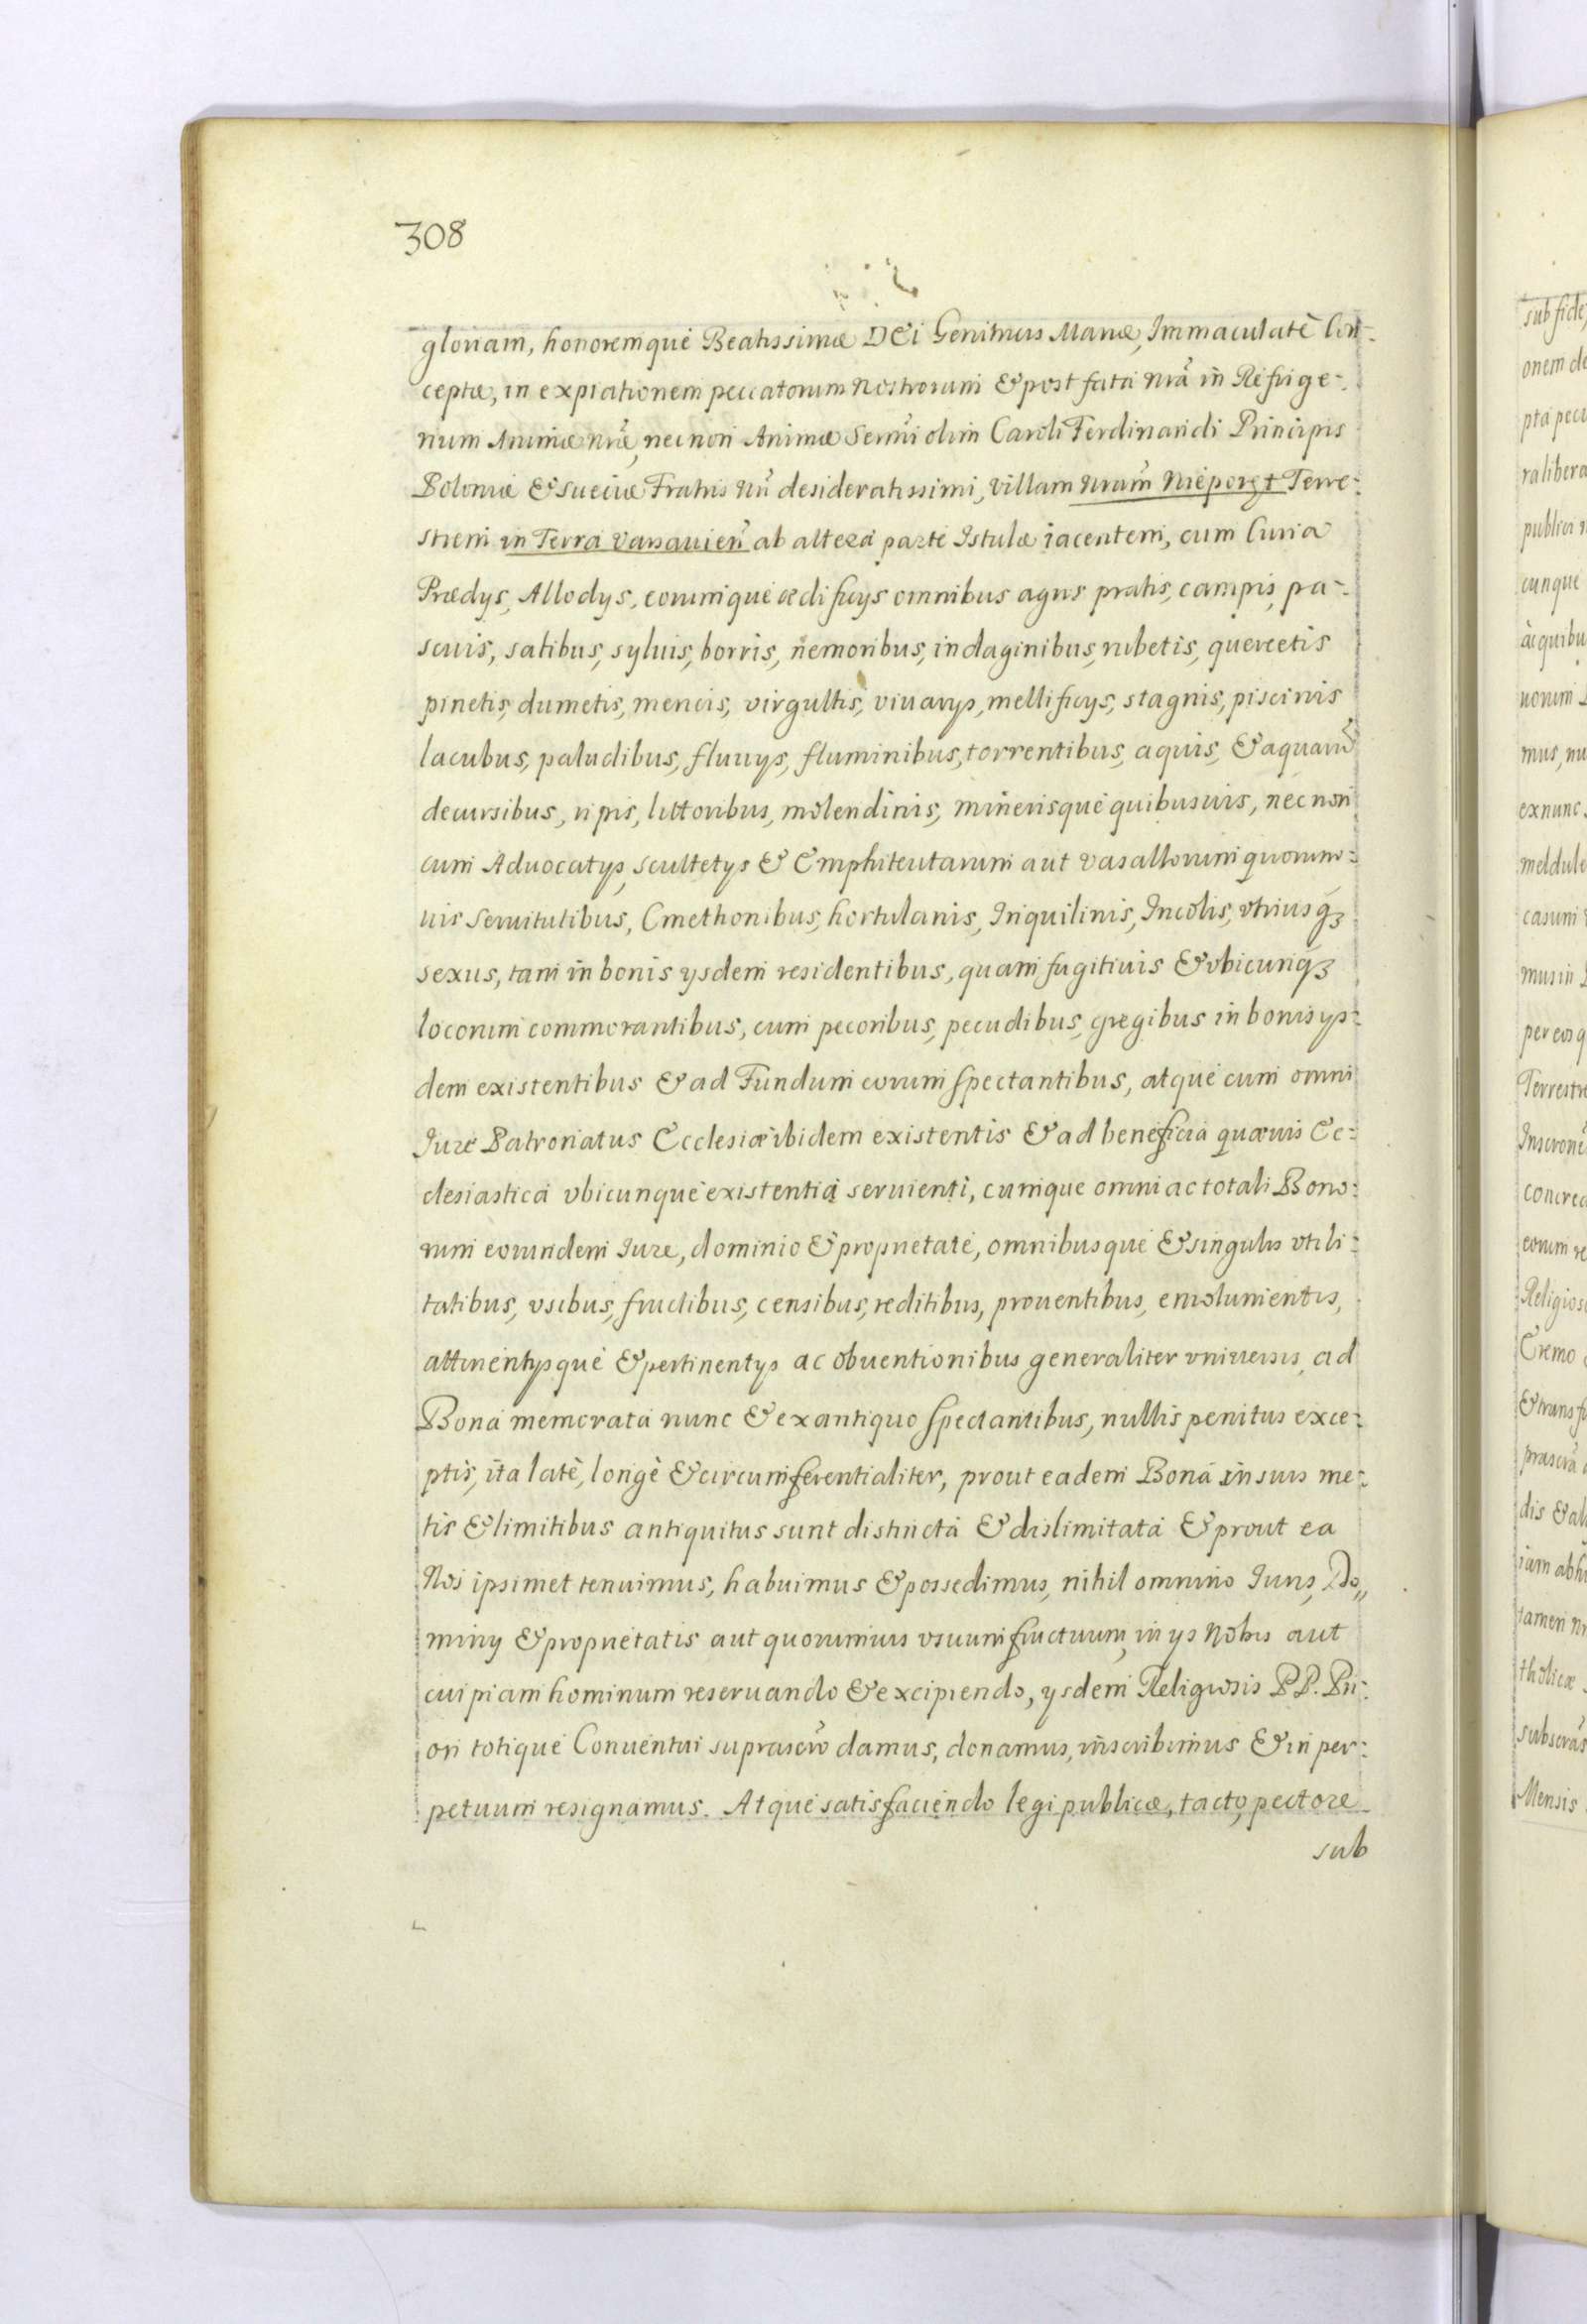 308
gloriam, honoremque Beatissimæ DEi Genitricis Mariæ, Immaculatè Con-
ceptæ, in expiationem peccatorum Nostrorum & post fata nrã in Refrige-
rium Animæ nræ, nec non Animæ Sermi olim Caroli Ferdinandi Principis
Poloniæ & Sueciæ Fratris nri desideratissimi, villam nram Nieporęt Terre-
strem in Terra Varsauien ab altera parte Istulæ iacentem, cum Curia
Prædijs, Allodijs, eorumque ædificijs omnibus agris pratis, campis, pa-
scuis, satibus, syluis, borris, nemoribus, indaginibus, rubetis, quercetis
pinetis, dumetis, mericis, virgultis, viuarijs, mellificijs, stagnis, piscinis
lacubus, paludibus, fluuijs, fluminibus, torrentibus, aquis, & aquarũ
decursibus, ripis, littoribus, molendinis, minerisque quibusuis, nec non
cum Aduocatijs, scultetijs & Emphiteutarum aut vasallorum quorum-
uis Seruitutibus, Cmethonibus, hortulanis, Inquilinis, Incolis, vtriusqꝫ
sexus, tam in bonis ijsdem residentibus, quam fugitiuis & vbicunqꝫ
locorum commorantibus, cum pecoribus, pecudibus, gregibus in bonis ijs-
dem existentibus & ad Fundum eorum spectantibus, atque cum omni
Iure Patronatus Ecclesiæ ibidem existentis & ad beneficia quæuis Ec-
clesiastica vbicunque existentia seruienti, cumque omni ac totali Bono-
rum eorundem Iure, dominio & proprietate, omnibusque & singulis vtili-
tatibus, vsibus, fructibus, censibus, reditibus, prouentibus, emolumentis,
attinentijsque & pertinentijs ac obuentionibus generaliter vniuersis, ad
Bona memorata nunc & ex antiquo spectantibus, nullis penitus exce-
ptis, ita latè, longè & circumferentialiter, prout eadem Bona in suis me-
tis & limitibus antiquitus sunt distincta & dislimitata & prout ea
Nos ipsimet tenuimus, habuimus & possedimus, nihil omnino Iuris, Do„
minij & proprietatis aut quorumuis vsuumfructuum, in ijs Nobis aut
cuipiam hominum reseruando & excipiendo, ijsdem Religiosis P.P. Pri-
ori totique Conuentui suprascrõ damus, donamus, inscribimus & in per-
petuum resignamus. Atque satisfaciendo legi publicæ, tacto, pectore
sub